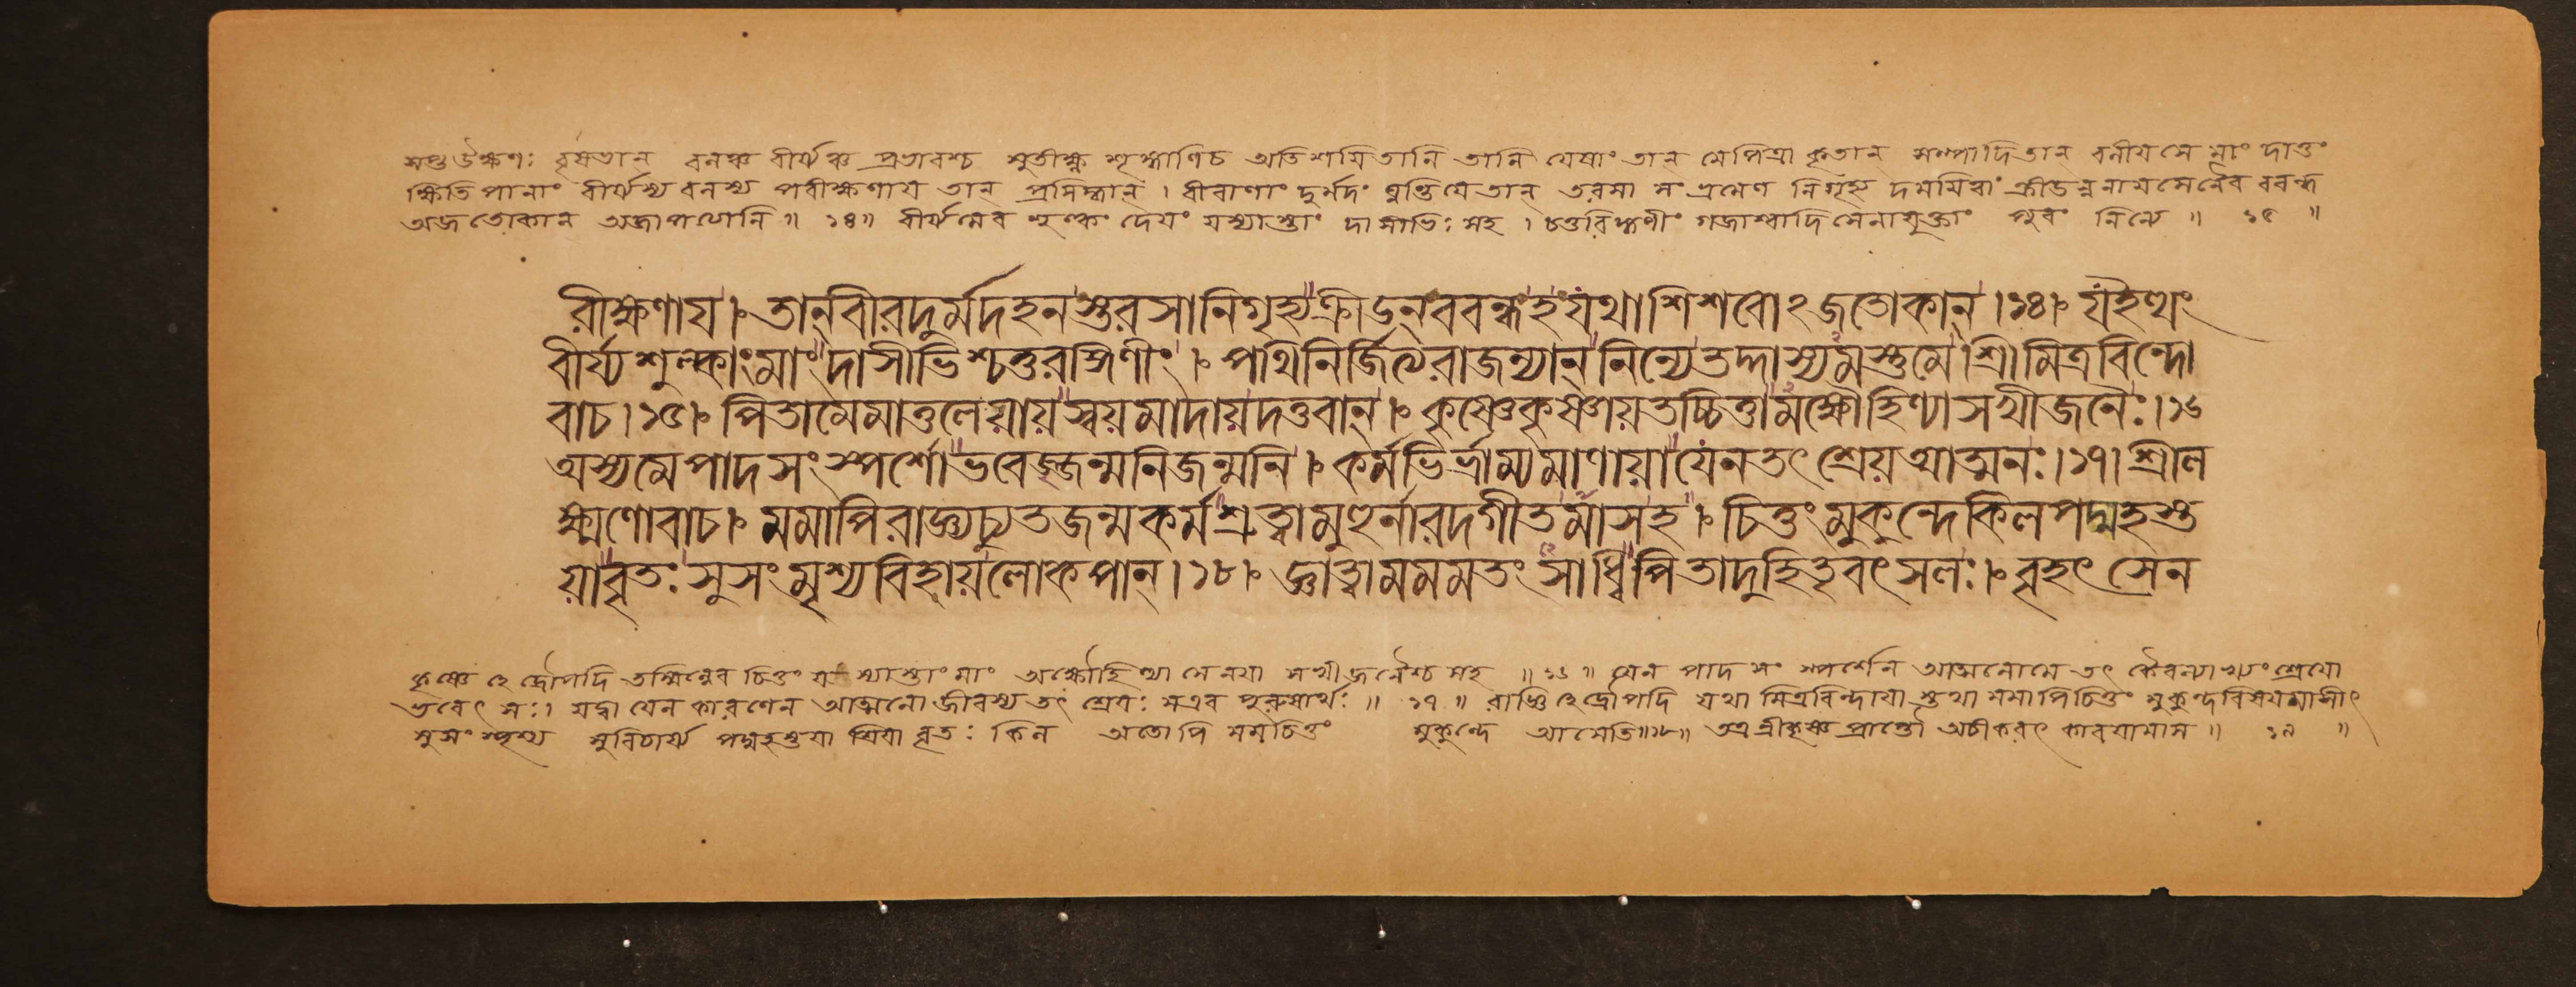 সপ্তউক্ষণঃ বৃষতান বলঞ্চ বীর্য্যঞ্চ প্রভাবশ্চ সুতীক্ষ্ণ শৃঙ্গাণিচ অতিশায়িতানি তানি যেষাং তান মেপিত্রা কৃতান সম্পাদিতান বলীয়সে মাং দাতুং
ক্ষিতি পানাং বীর্য্যস্য বলস্য পরীক্ষণায় তান । বীরাণাং দুর্মদং ঘ্নন্তিযেতান তরসা নিগৃহ্য ববন্ধ
অজতোকান অজাপত্যানি ॥ ১৪॥ বীর্য্যমেব শুল্কং দেয়ং যস্যাস্তাং দাসীভিঃ সহ । চতুরঙ্গিণীং গজাশ্বাদি সেনাযুক্তাং পুরং নিন্যে ॥ ১৫ ॥
রীক্ষণায় । তানবীরদুর্মদহনস্তরসানিগৃহ্যক্রীড়ন্ববন্ধহযথাশিশবোঽজতোকান্ ।১৪। যইত্থং
বীর্য্যশুল্কাংমাংদাসীভিশ্চতুরঙ্গিণীং । পথিনির্জিত্যরাজন্যান্নিন্যেতদ্দাস্যমস্তুমে।শ্রীমিত্রবিন্দো
বাচ।১৫। পিতামেমাতুলেয়ায়স্বয়মাদায়দত্তবান্ । কৃষ্ণেকৃষ্ণায়তচ্চিত্তামক্ষৌহিণ্যাসখীজনৈঃ।১৬
অস্যমেপাদসংস্পর্শোভবেজ্জন্মনিজন্মনি । কর্মভির্ভ্রাম্যমাণায়াযেনতৎশ্রেয়আত্মনঃ।১৭।শ্রীল
ক্ষ্মণোবাচ। মমাপিরাজ্ঞ্যচ্যুতজন্মকর্মশ্রুত্বামুহুর্নারদগীতমাসহ । চিত্তংমুকুন্দেকিলপদ্মহস্ত
য়াবৃতঃসুসংমৃশ্যবিহায়লোকপান্।১৮। জ্ঞাত্বামমমতংসাধ্বিপিতাদুহিতৃবৎসলঃ। বৃহৎসেন
কৃষ্ণে হে দ্রৌপদি তস্মিন্নেব চিত্তং যস্যাস্তাং মাং অক্ষৌহিণ্যা সেনয়া সখীজনৈশ্চ সহ ॥ ১৬ ॥ যেন পাদ সংস্পর্শেন আত্মনোমে তৎ কৈবল্যাখ্যং শ্রেয়ো
ভবেৎ সঃ। যদ্বা যেন কারণেন আত্মনো জীবস্য তৎ শ্রেয়ঃ সএব পুরুষার্থঃ ॥ ১৭ ॥ রাজ্ঞি হে দ্রৌপদি যথা মিত্রবিন্দায়া স্তথা মমাপিচিত্তং মুকুন্দবিষয়মাসীৎ
সুসংমৃশ্য সুবিচার্য্য পদ্মহস্তয়া শ্রিয়া বৃতঃ কিল অতোপি মমচিত্তং মুকুন্দে আসেতি॥১৮॥ তত্র শ্রীকৃষ্ণ প্রাপ্তৌ অচীকরৎ কারয়ামাস ॥ ১৯ ॥